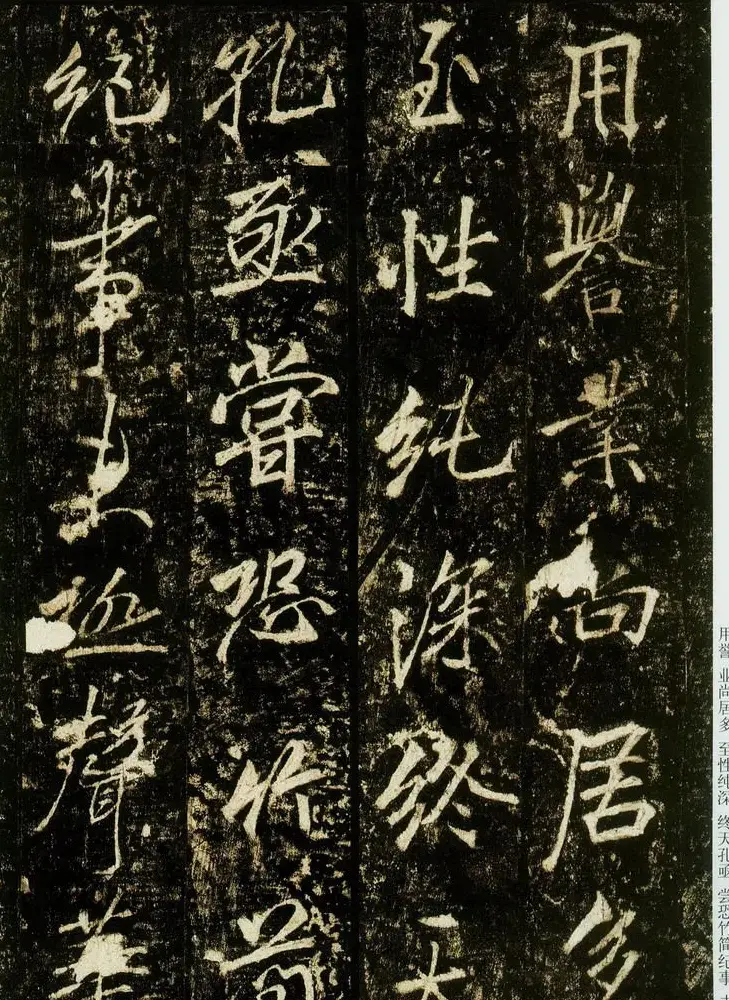 用譽業尚居多
至性純深終天
孔亟嘗恐竹簡
紀事未極聲華
用誉 业尚居多 至性纯深 终天孔亟 尝恐竹简纪事